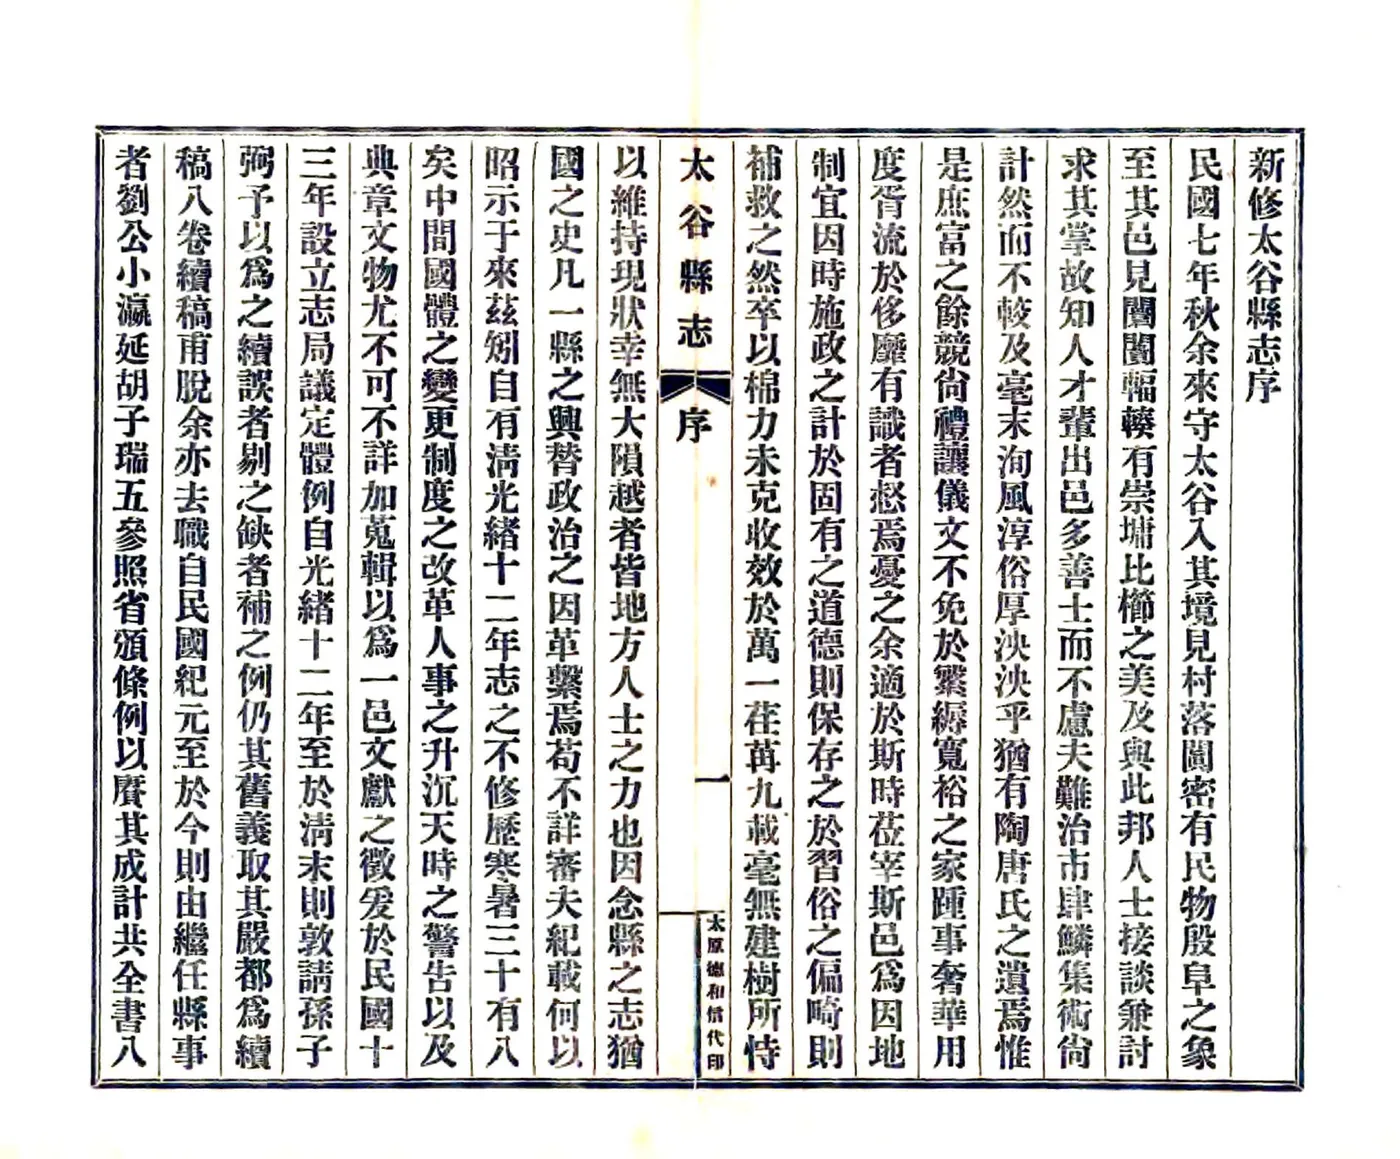 新修太谷縣志序
民國七年秋余來守太谷入其境見村落闐密有民物殷阜之象
至其邑見闤闠輻輳有崇墉比櫛之美及與此邦人士接談兼討
求其掌故知人才輩出邑多善士而不慮夫難治市肆鱗集術尙
計然而不較及毫末洵風淳俗厚泱泱乎猶有陶唐氏之遺焉惟
是庶富之餘競尙禮讓儀文不免於繁縟寬裕之家踵事奢華用
度胥流於侈靡有識者惄焉憂之余適於斯時莅宰斯邑爲因地
制宜因時施政之計於固有之道德則保存之於習俗之偏畸則
補救之然卒以棉力未克收效於萬一荏苒九載毫無建樹所恃
太谷縣志
序
一
太原德和信代印
以維持現狀幸無大隕越者皆地方人士之力也因念縣之志猶
國之史凡一縣之興替政治之因革繫焉苟不詳審夫紀載何以
昭示于來茲矧自有淸光緒十二年志之不修歷寒暑三十有八
矣中間國體之變更制度之改革人事之升沉天時之警告以及
典章文物尤不可不詳加蒐輯以爲一邑文獻之徵爰於民國十
三年設立志局議定體例自光緒十二年至於淸末則敦請孫子
弼予以爲之續誤者剔之缺者補之例仍其舊義取其嚴都爲續
稿八卷續稿甫脫余亦去職自民國紀元至於今則由繼任縣事
者劉公小瀛延胡子瑞五參照省頒條例以賡其成計共全書八